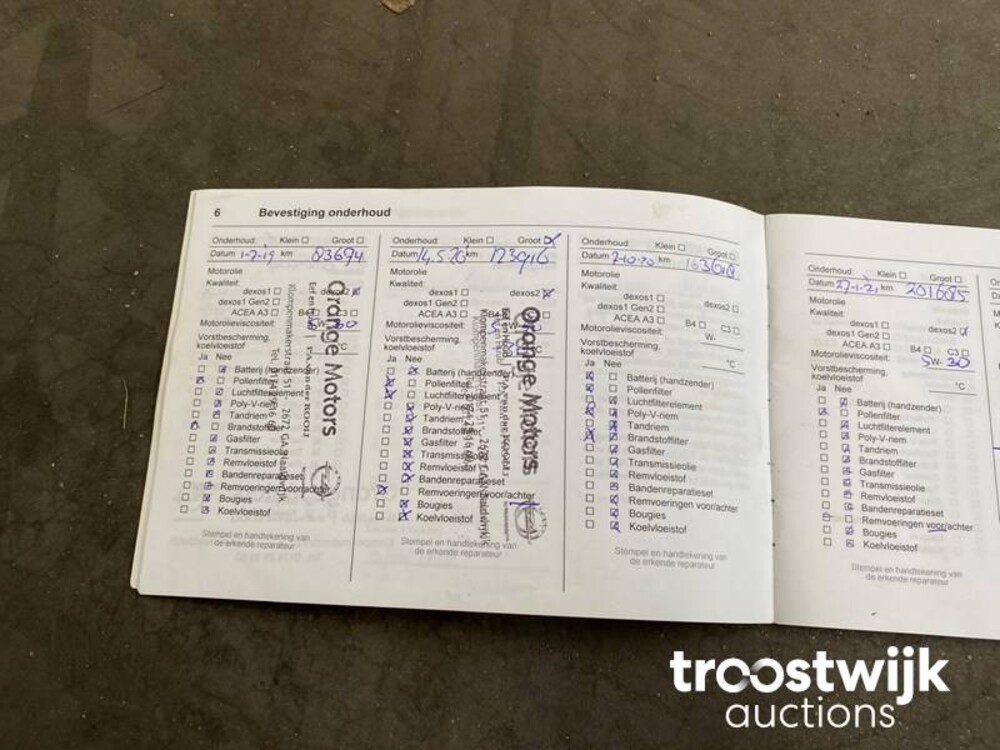 6 Bevestiging onderhoud
Onderhoud: Klein ☐ Groot ☐
Datum 1-7-19 km 83694
Motorolie
Kwaliteit:
dexos1 ☐ dexos2 ☒
dexos1 Gen2 ☐
ACEA A3 ☐ B4 ☐ C3 ☐
Motorolieviscositeit: 5W-30
Vorstbescherming,
koelvloeistof °C
Ja Nee
Batterij (handzender)
Pollenfilter
Luchtfilterelement
Poly-V-riem
Tandriem
Brandstoffilter
Gasfilter
Transmissieolie
Remvloeistof
Bandenreparatieset
Remvoeringen voor/achter
Bougies
Koelvloeistof
Stempel en handtekening van
de erkende reparateur
Orange Motors
Klompenmakerstraat 51 2672 GA Naaldwijk
Onderhoud: Klein ☐ Groot ☒
Datum 14.5.20 km 123916
Motorolie
Kwaliteit:
dexos1 ☐ dexos2 ☒
dexos1 Gen2 ☐
ACEA A3 ☐ B4
Motorolieviscositeit:
Vorstbescherming,
koelvloeistof °C
Ja Nee
Batterij (handzender)
Pollenfilter
Luchtfilterelement
Poly-V-riem
Tandriem
Brandstoffilter
Gasfilter
Transmissieolie
Remvloeistof
Bandenreparatieset
Remvoeringen voor/achter
Bougies
Koelvloeistof
Stempel en handtekening van
de erkende reparateur
Orange Motors
Onderhoud: Klein ☐ Groot ☐
Datum 2-10-20 km
Motorolie
Kwaliteit:
dexos1 ☐ dexos2 ☐
dexos1 Gen2 ☐
ACEA A3 ☐ B4 ☐ C3 ☐
Motorolieviscositeit: W-
Vorstbescherming,
koelvloeistof °C
Ja Nee
Batterij (handzender)
Pollenfilter
Luchtfilterelement
Poly-V-riem
Tandriem
Brandstoffilter
Gasfilter
Transmissieolie
Remvloeistof
Bandenreparatieset
Remvoeringen voor/achter
Bougies
Koelvloeistof
Stempel en handtekening van
de erkende reparateur
Onderhoud: Klein ☐ Groot ☐
Datum 27-1-21 km 201685
Motorolie
Kwaliteit:
dexos1 ☐ dexos2 ☒
dexos1 Gen2 ☐
ACEA A3 ☐ B4 ☐ C3 ☐
Motorolieviscositeit: 5W-30
Vorstbescherming,
koelvloeistof °C
Ja Nee
Batterij (handzender)
Pollenfilter
Luchtfilterelement
Poly-V-riem
Tandriem
Brandstoffilter
Gasfilter
Transmissieolie
Remvloeistof
Bandenreparatieset
Remvoeringen voor/achter
Bougies
Koelvloeistof
Stempel en handtekening van
de erkende reparateur
troostwijk
auctions